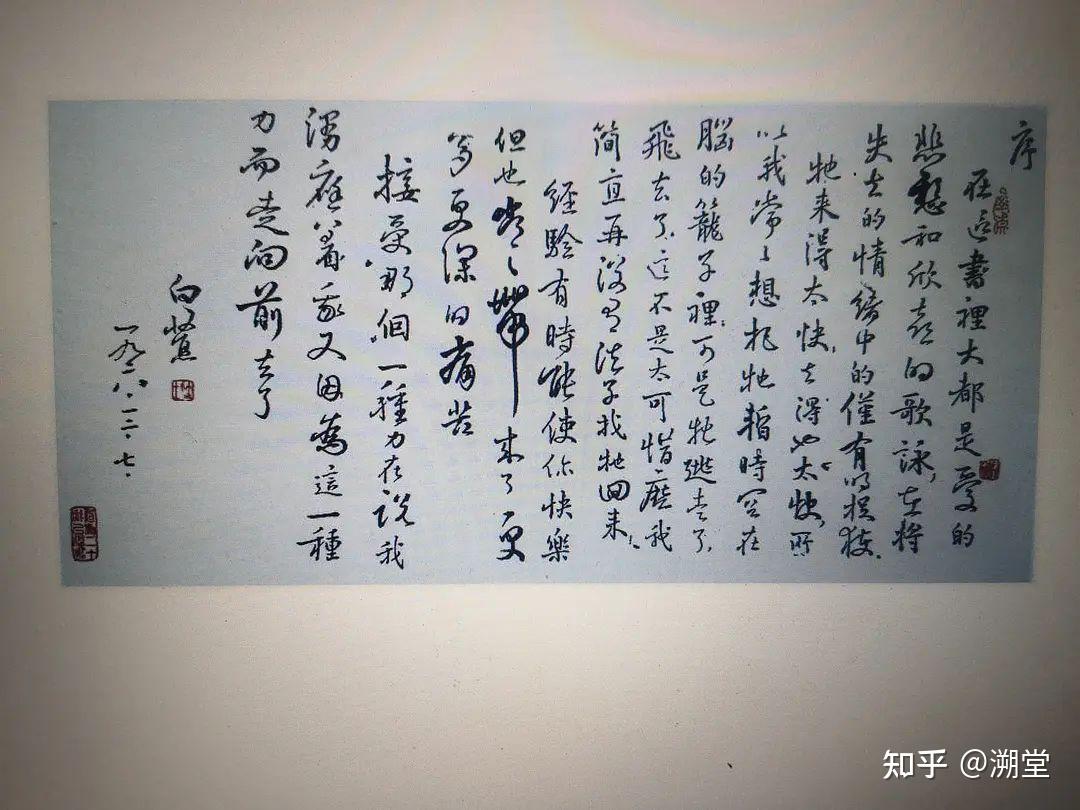 序
在這書裡大都是愛的
悲愁和欣喜的歌詠,在將
失去的情緒中的僅有的捉獲.
牠来得太快,去得也太快,所
以我常々想把牠暫時関在
腦的籠子裡.可是牠逃去了.
飛去了.這不是太可惜麽我
簡直再没有法子找牠回来.
經驗有時能使你快樂
但也常々帶来了更
多更深的痛苦
接受那個一種力在說我
應着我又因為這一種
力而走向前去了
白蕉
一九二八.一二.七.
知乎 @溯堂